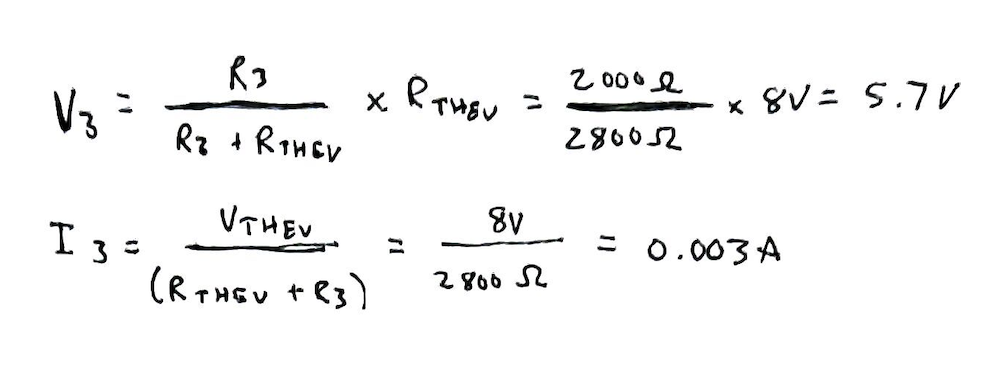 V3 = R3 / (R3 + RTHEV) × RTHEV = 2000Ω / 2800Ω × 8V = 5.7V
I3 = VTHEV / (RTHEV + R3) = 8V / 2800Ω = 0.003A